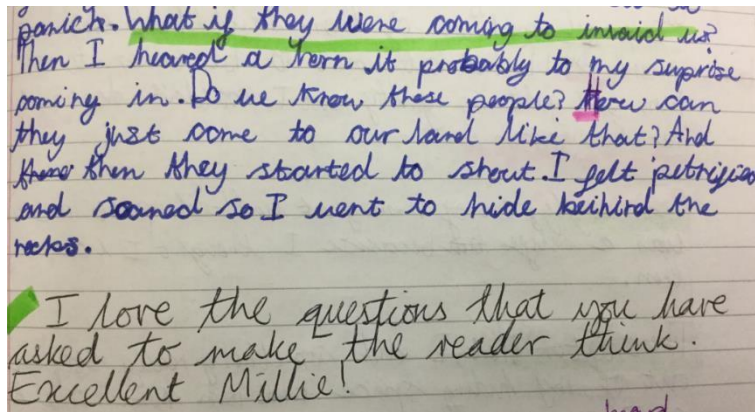 panick. What if they were coming to invaid us?
Then I heared a horn it probably to my suprise
coming in. Do we know these people? How can
they just come to our land like that? And
then they started to shout. I felt petrified
and scared so I went to hide beihind the
rocks.
I love the questions that you have
asked to make the reader think.
Excellent Millie!